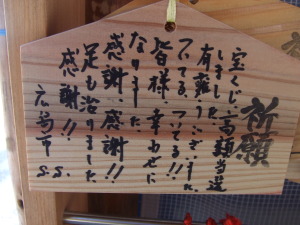 祈願
宝くじ高額当選
しました
有難うございます
ついてる ついてる!!
皆様、幸わせに
なりました
感謝、感謝!!
足も治りました
感謝!!
広島市 S.S.